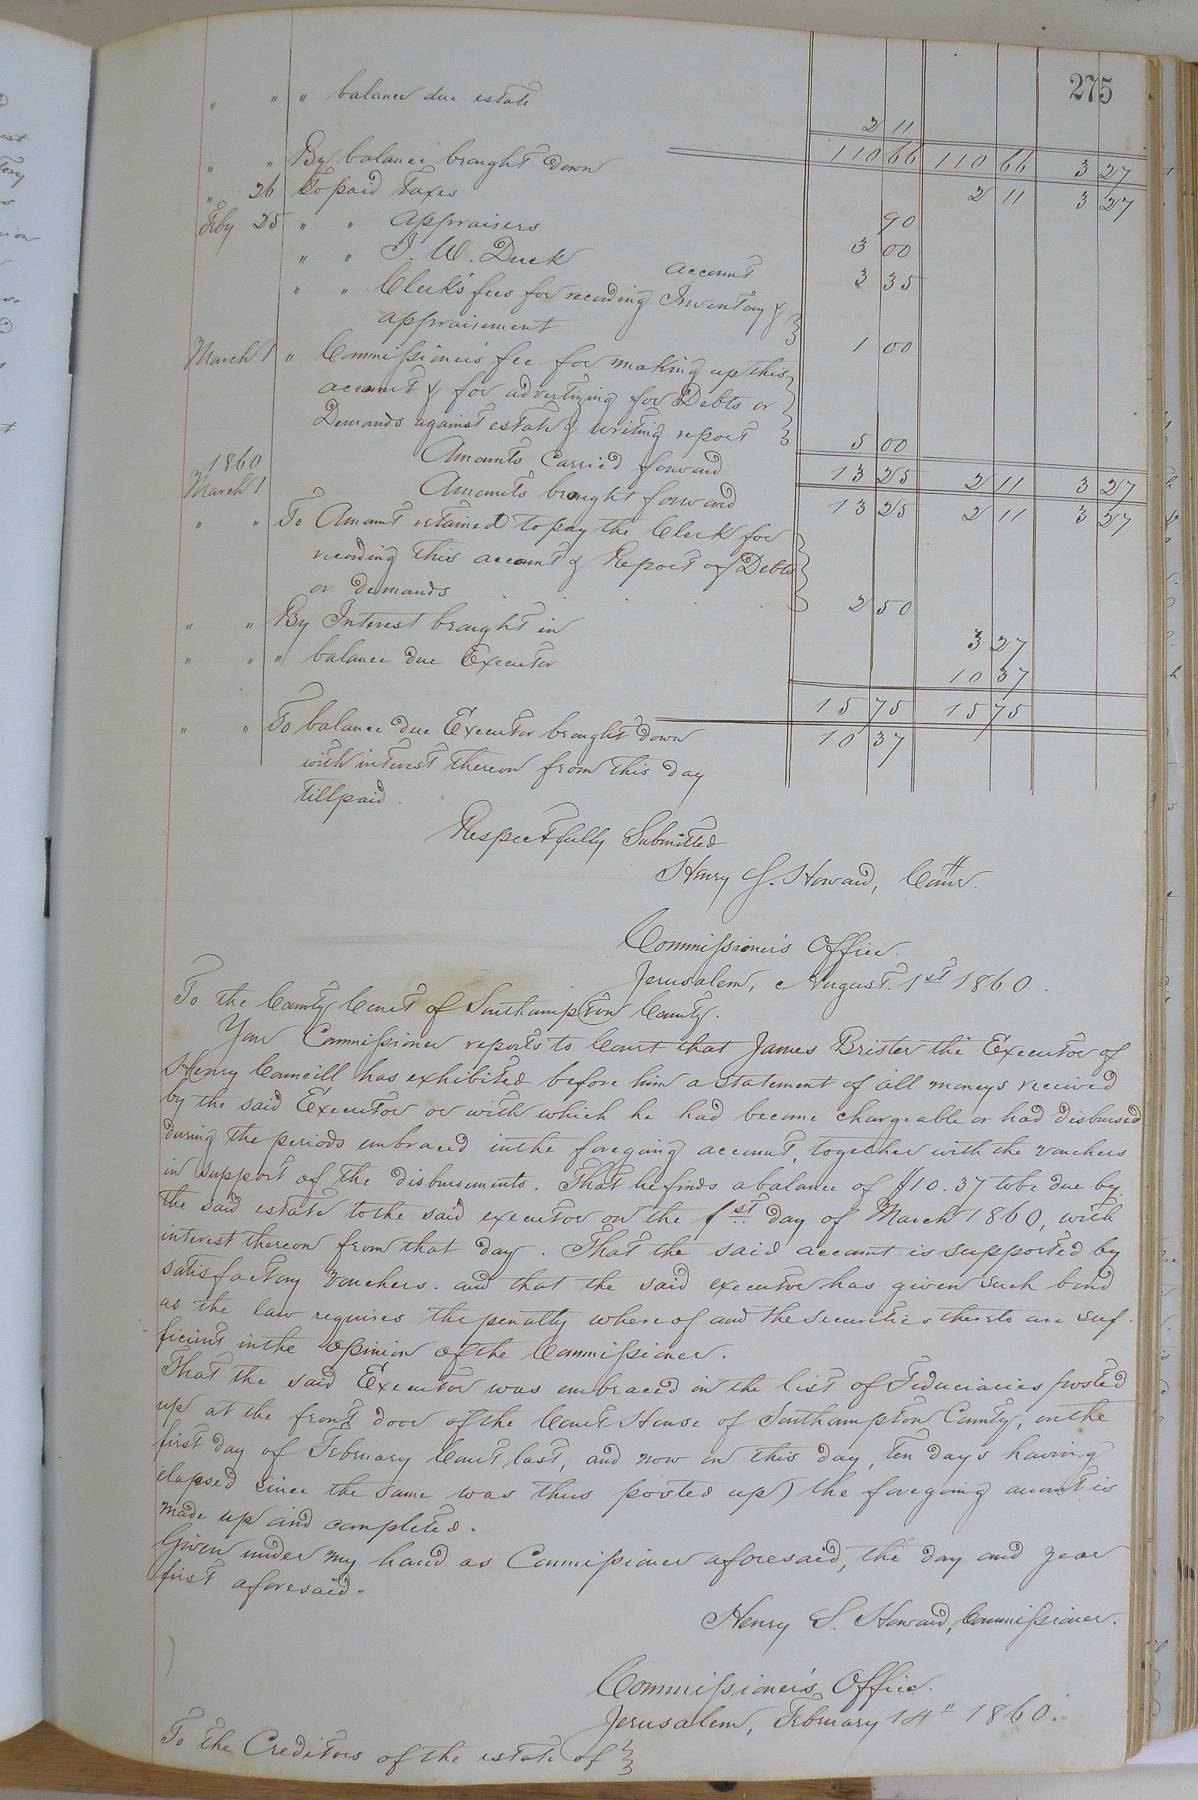 275
" " " balance due estate 2 11
110 66 110 66 3 27
" " By balance brought down 2 11 3 27
" 26 To paid Taxes 90
Feby 25 " " appraisers 3 00
" " J. W. Duck account 3 35
" " Clerk's fees for recording Inventory &
appraisement 1 00
March 1 " Commissioner's fee for making up this
account & for advertizing for Debts or
Demands against estate & writing report 5 00
Amounts Carried forward 13 25 2 11 3 27
1860
March 1 Amounts brought forward 13 25 2 11 3 27
" " To Amount retained to pay the Clerk for
recording this account & Report of Debts
or demands 2 50
" " By Interest brought in 3 27
" " " balance due Executor 10 37
15 75 15 75
" " To balance due Executor brought down 10 37
with interest thereon from this day
till paid.
Respectfully Submitted
Henry S. Howard, Comr.
Commissioner's Office.
Jerusalem, August. 1st 1860.
To the County Court of Southampton County.
Your Commissioner reports to Court that James Brister the Executor of
Henry Councill has exhibited before him a statement of all moneys received
by the said Executor or with which he had become chargeable or had disbursed
during the periods embraced in the foregoing account, together with the vouchers
in support of the disbursements. That he finds a balance of $10.37 to be due by
the said estate to the said executor on the 1st day of March 1860, with
interest thereon from that day. That the said account is supported by
satisfactory vouchers. and that the said executor has given such bond
as the law requires the penalty whereof and the securities thereto are suf-
ficient in the opinion of the Commissioner.
That the said Executor was embraced in the list of Fiduciaries posted
up at the front door of the Court House of Southampton County, on the
first day of February Court last, and now on this day, ten days having
elapsed since the same was thus posted up) the foregoing account is
made up and completed.
Given under my hand as Commissioner aforesaid, the day and year
first aforesaid.
Henry S. Howard, Commissioner.
Commissioner's Office.
Jerusalem, February 14" 1860.
To the Creditors of the estate of